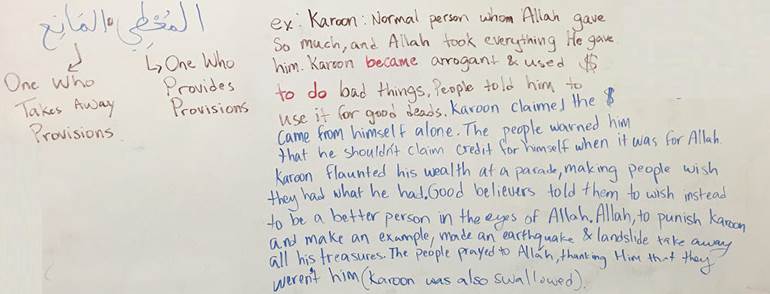 المُعْطِي والمَانِع
One Who
Takes Away
Provisions
↳ One Who
Provides
Provisions
ex: Karoon: Normal person whom Allah gave
So much, and Allah took everything He gave
him. Karoon became arrogant & used $
to do bad things. People told him to
use it for good deads. Karoon claimed the $
came from himself alone. The people warned him
that he shouldn't claim credit for himself when it was for Allah.
Karoon flaunted his wealth at a parade, making people wish
they had what he had. Good believers told them to wish instead
to be a better person in the eyes of Allah. Allah, to punish Karoon
and make an example, made an earthquake & landslide take away
all his treasures. The people prayed to Allah, thanking Him that they
weren't him (Karoon was also swallowed).